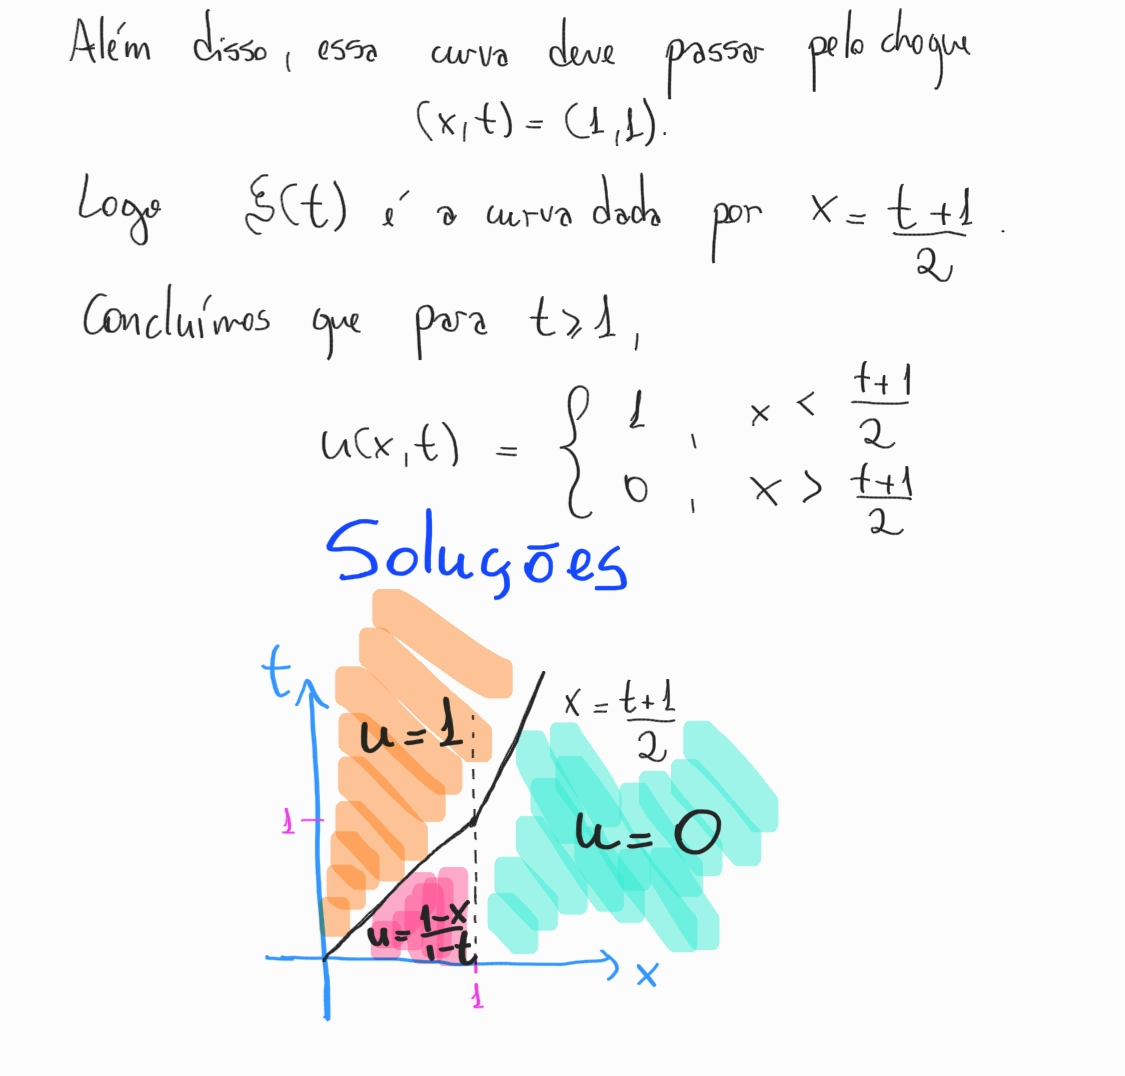 Além disso, essa curva deve passar pelo choque
(x,t) = (1,1).
Logo ξ(t) é a curva dada por x = \frac{t+1}{2}.
Concluímos que para t ≥ 1,
u(x,t) = { 1, x < \frac{t+1}{2}
0, x > \frac{t+1}{2}
Soluções
t
x = \frac{t+1}{2}
u = 1
1
u = 0
u = \frac{1-x}{1-t}
x
1